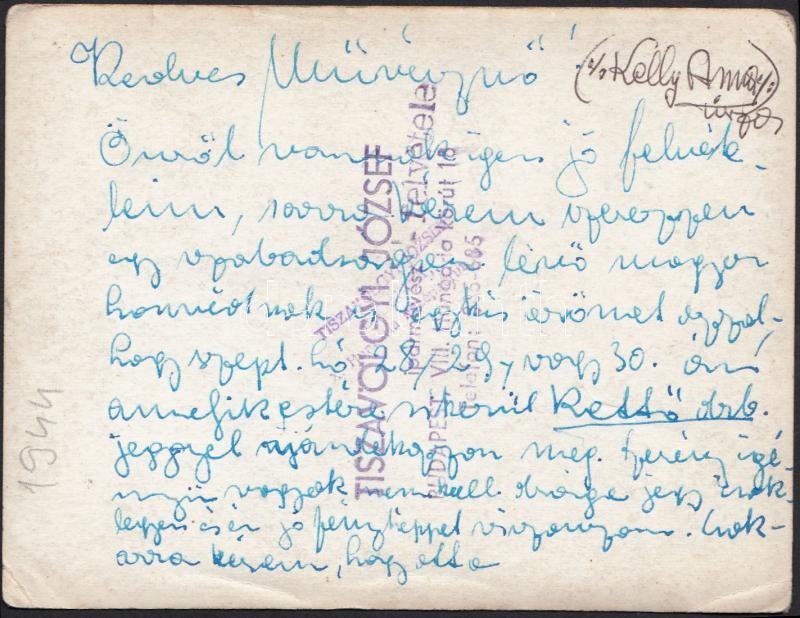 Kedves Művésznő!
(:/: Kelly Anna :/:)
Önről vannak igen jó felvéte-
leim, arra kérem szerezzen
egy szabadságon lévő magyar
honvédnek is egy kis örömet azzal,
hogy szept. hó 28, 29, vagy 30. án
amelyik estére sikerül Kettő drb.
jeggyel ajándékozzon meg. Szerény igé-
nyű vagyok nem kell drága jegy csak
legyen és én jó fényképpel viszonzom. Csak
arra kérem, hogy ott a
1944
TISZAVÖLGYI JÓZSEF
iparművész - felvétele
BUDAPEST, VIII. Hungária körút 10
Telefon: